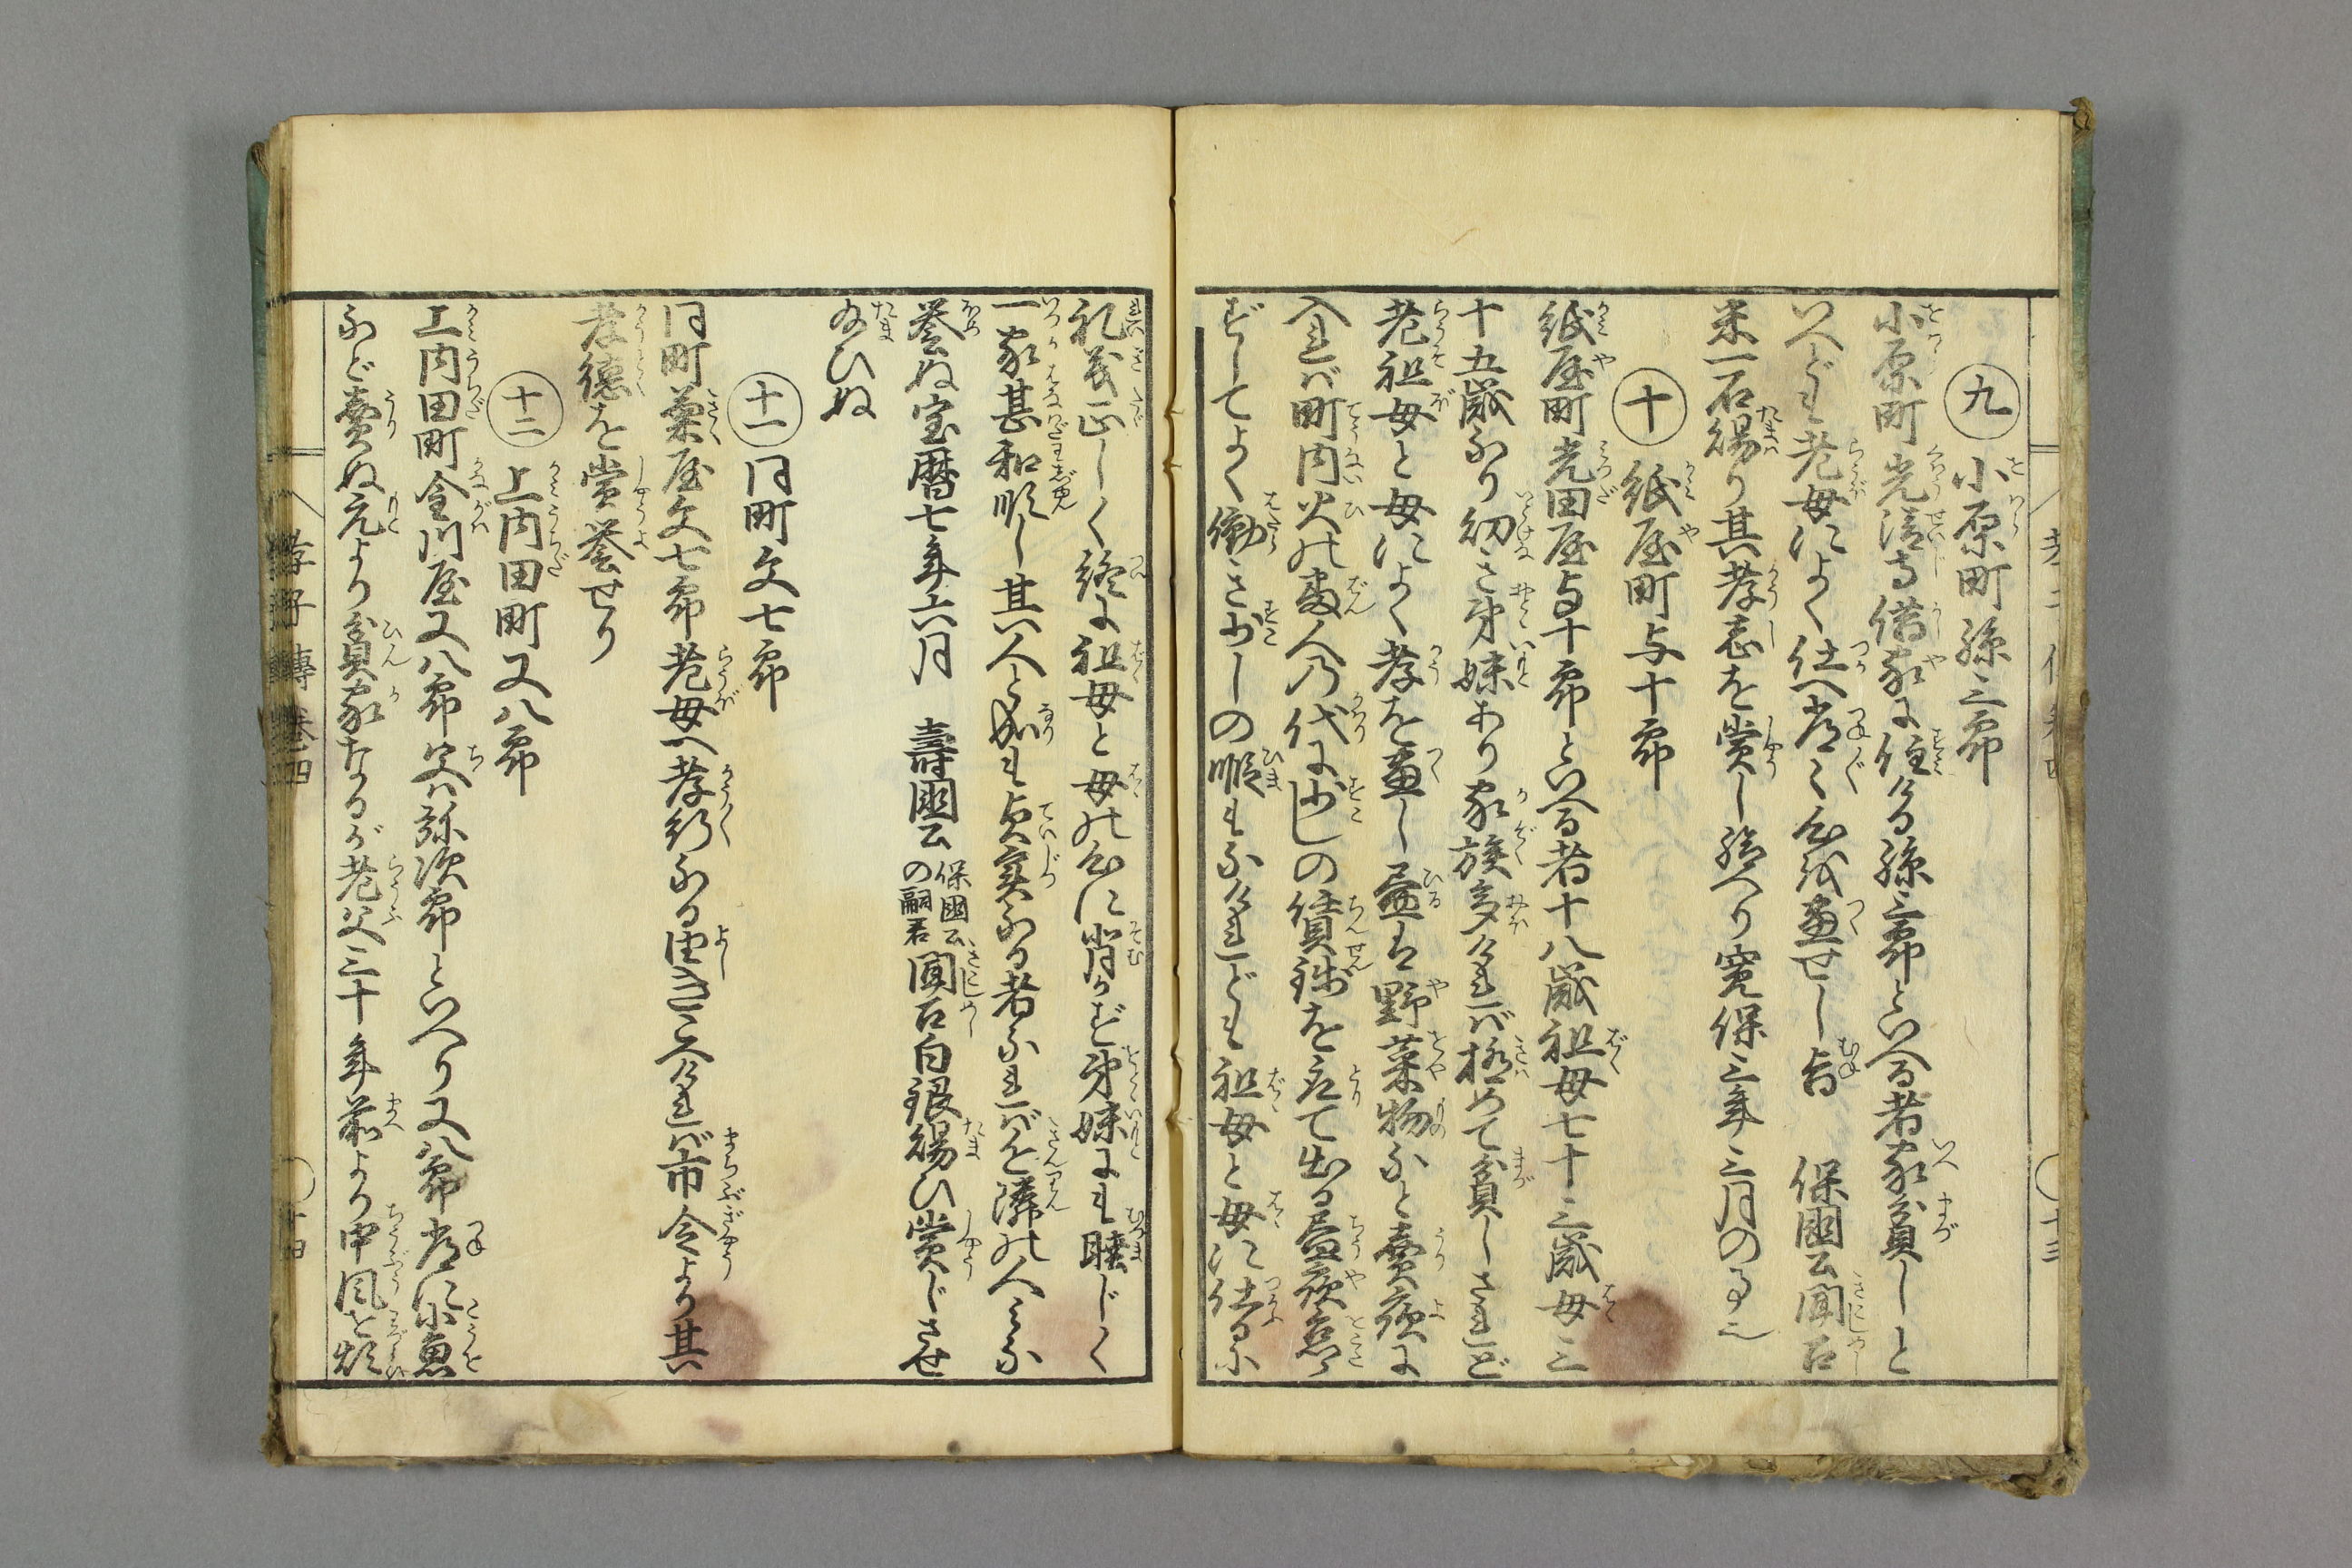 九 小原町孫三郎
小原町光清寺借家に住ける孫三郎といへる者家貧しと
いへども老母によく仕へ常々心を尽せし旨 保国公聞召
米一石賜り其孝志を賞し給へり寛保三年三月の事也
十 紙屋町与十郎
紙屋町光田屋与十郎といへる者十八歳祖母七十三歳母三
十五歳なり幼き弟妹あり家族多ければ極めて貧しされど
老祖母と母によく孝を尽し昼は野菜物など売夜に
入れば町内火の番人の代に少しの賃銭を取て出る昼夜怠ら
ずしてよく働き少しの暇もなけれども祖母と母に仕るに
礼義正しく終に祖母と母の心に背かず弟妹にも睦じく
一家甚和順し其人と成も貞実なる者なれば近隣の人みな
誉ぬ宝暦七年六月 壽国公 保国公の嗣君 聞召白銀賜ひ賞じさせ
給ひぬ
十一 同町文七郎
同町菊屋文七郎老母へ孝行なる由きこへければ市令より其
孝徳を賞誉せり
十二 上内田町又八郎
上内田町金川屋又八郎父は弥次郎といへり又八郎常に小魚
など売ぬ元より貧家たるが老父三十年前より中風を煩
孝子傳 巻四